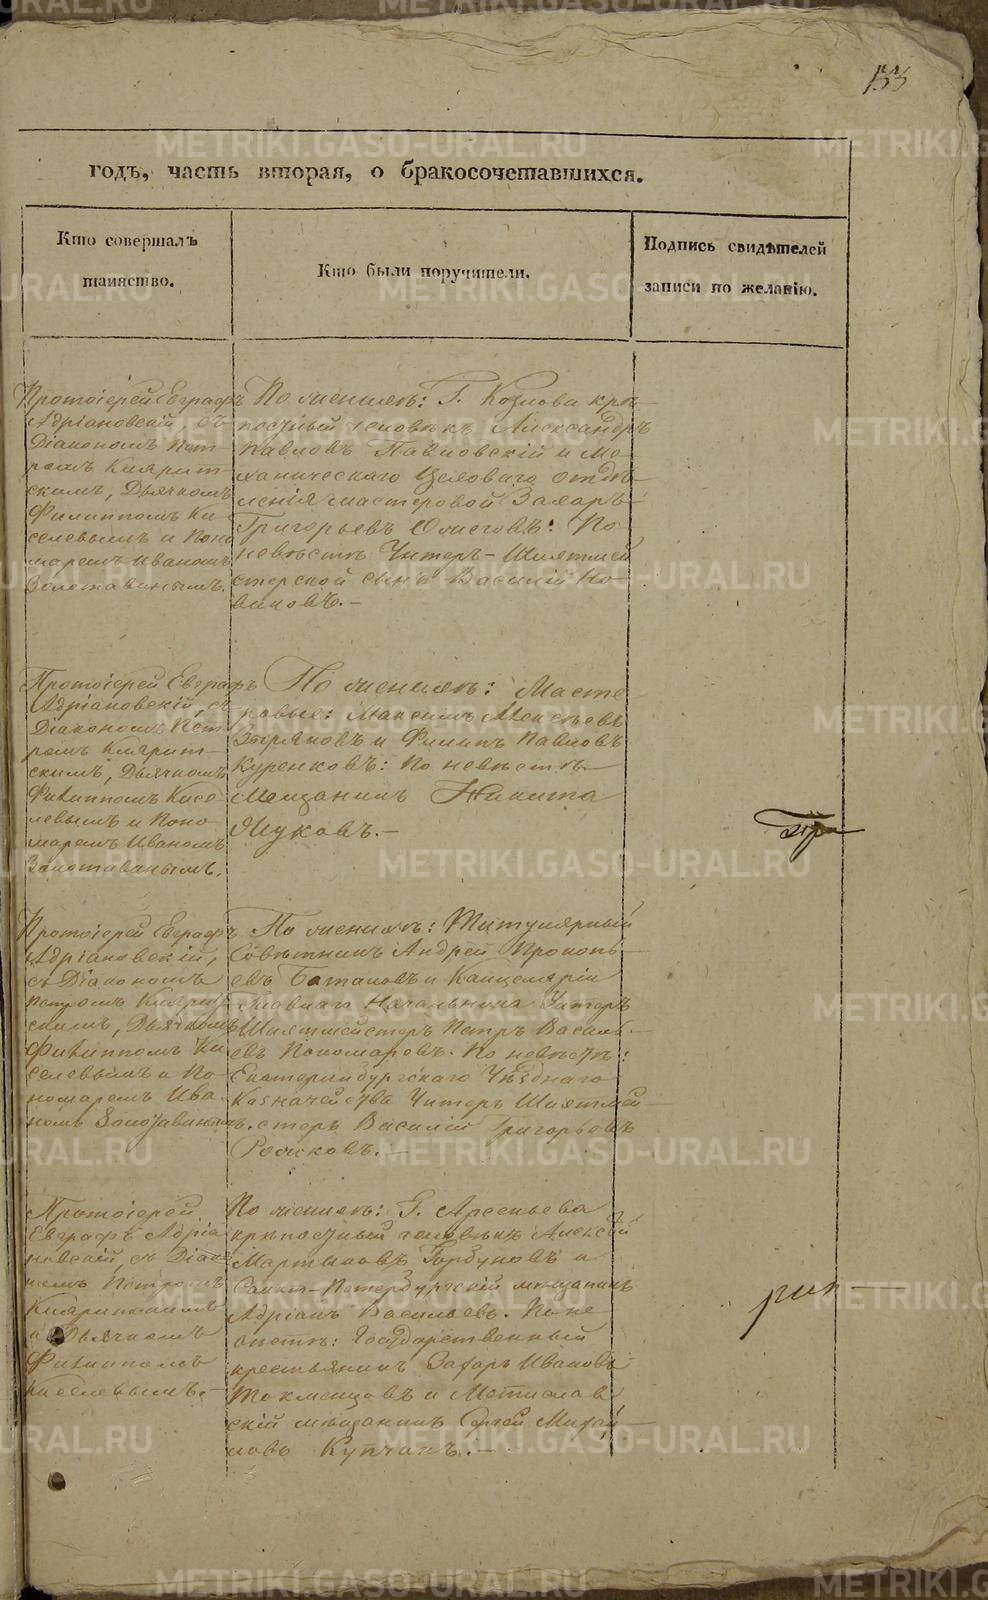 153
годъ, часть вторая, о бракосочетавшихся.
Кто совершалъ
таинство.
Кто были поручители.
Подпись свидѣтелей
записи по желанію.
Протоіерей Евграфъ
Адріановскій съ
Діакономъ Пет-
ромъ Кипарит-
скимъ, Дьячкомъ
Филиппомъ Ки-
селевымъ и Поно
маремъ Иваномъ
Золотавинымъ.
По женихѣ: Г. Козлова крѣ-
постный человѣкъ Александръ
Павловъ Павловскій и Ме-
ханическаго Цеховаго отдѣ-
ленія мастеровой Захаръ
Григорьевъ По
невѣстѣ Унтеръ-Шихтмей
стерской сынъ Василій Но-
виковъ.-
Протоіерей Евграфъ
Адріановскій, съ
Діакономъ Пет-
ромъ Кипарит-
скимъ, Дьячкомъ
Филиппомъ Кисе-
левымъ и Поно-
маремъ Иваномъ
Золотавинымъ.
По женихѣ: Масте
ровые: Максимъ Алексѣевъ
Зыряновъ и Филипъ Павловъ
Куренковъ: По невѣстѣ
Мѣщанинъ Никита
Жуковъ.-
Протоіерей Евграфъ
Адріановскій,
съ Діакономъ
Петромъ Кипарит-
скимъ, Дьячкомъ
Филиппомъ Ки
селевымъ и По-
номаремъ Ива-
номъ Золотавинымъ.
По женихѣ: Титулярный
Совѣтникъ Андрей Прокопь-
евъ Баталовъ и Канцеляріи
Главнаго Начальника Унтеръ
Шихтмейстеръ Петръ Василь-
евъ Пономаревъ. По невѣстѣ:
Екатеринбургскаго Уѣзднаго
Казначейства Унтеръ Шихтмей-
стеръ Василій Григорьевъ
Протоіерей
Евграфъ Адріа
новскій, съ Діако
номъ Петромъ
Кипаритскимъ
и Дьячкомъ
Филиппомъ
Киселевымъ.-
По женихѣ: Г. Арсеньева
крѣпостный человѣкъ Алексѣй
Мартыновъ Горбуновъ и
Санкт-Петербургскій мѣщанинъ
Адріанъ Васильевъ. По не
вѣстѣ: Государственный
крестьянинъ Захаръ Ивановъ
Токменцовъ и Мстислав
скій мѣщанинъ Сергѣй Михай
ловъ Купчинъ.-
METRIKI.GASO-URAL.RU